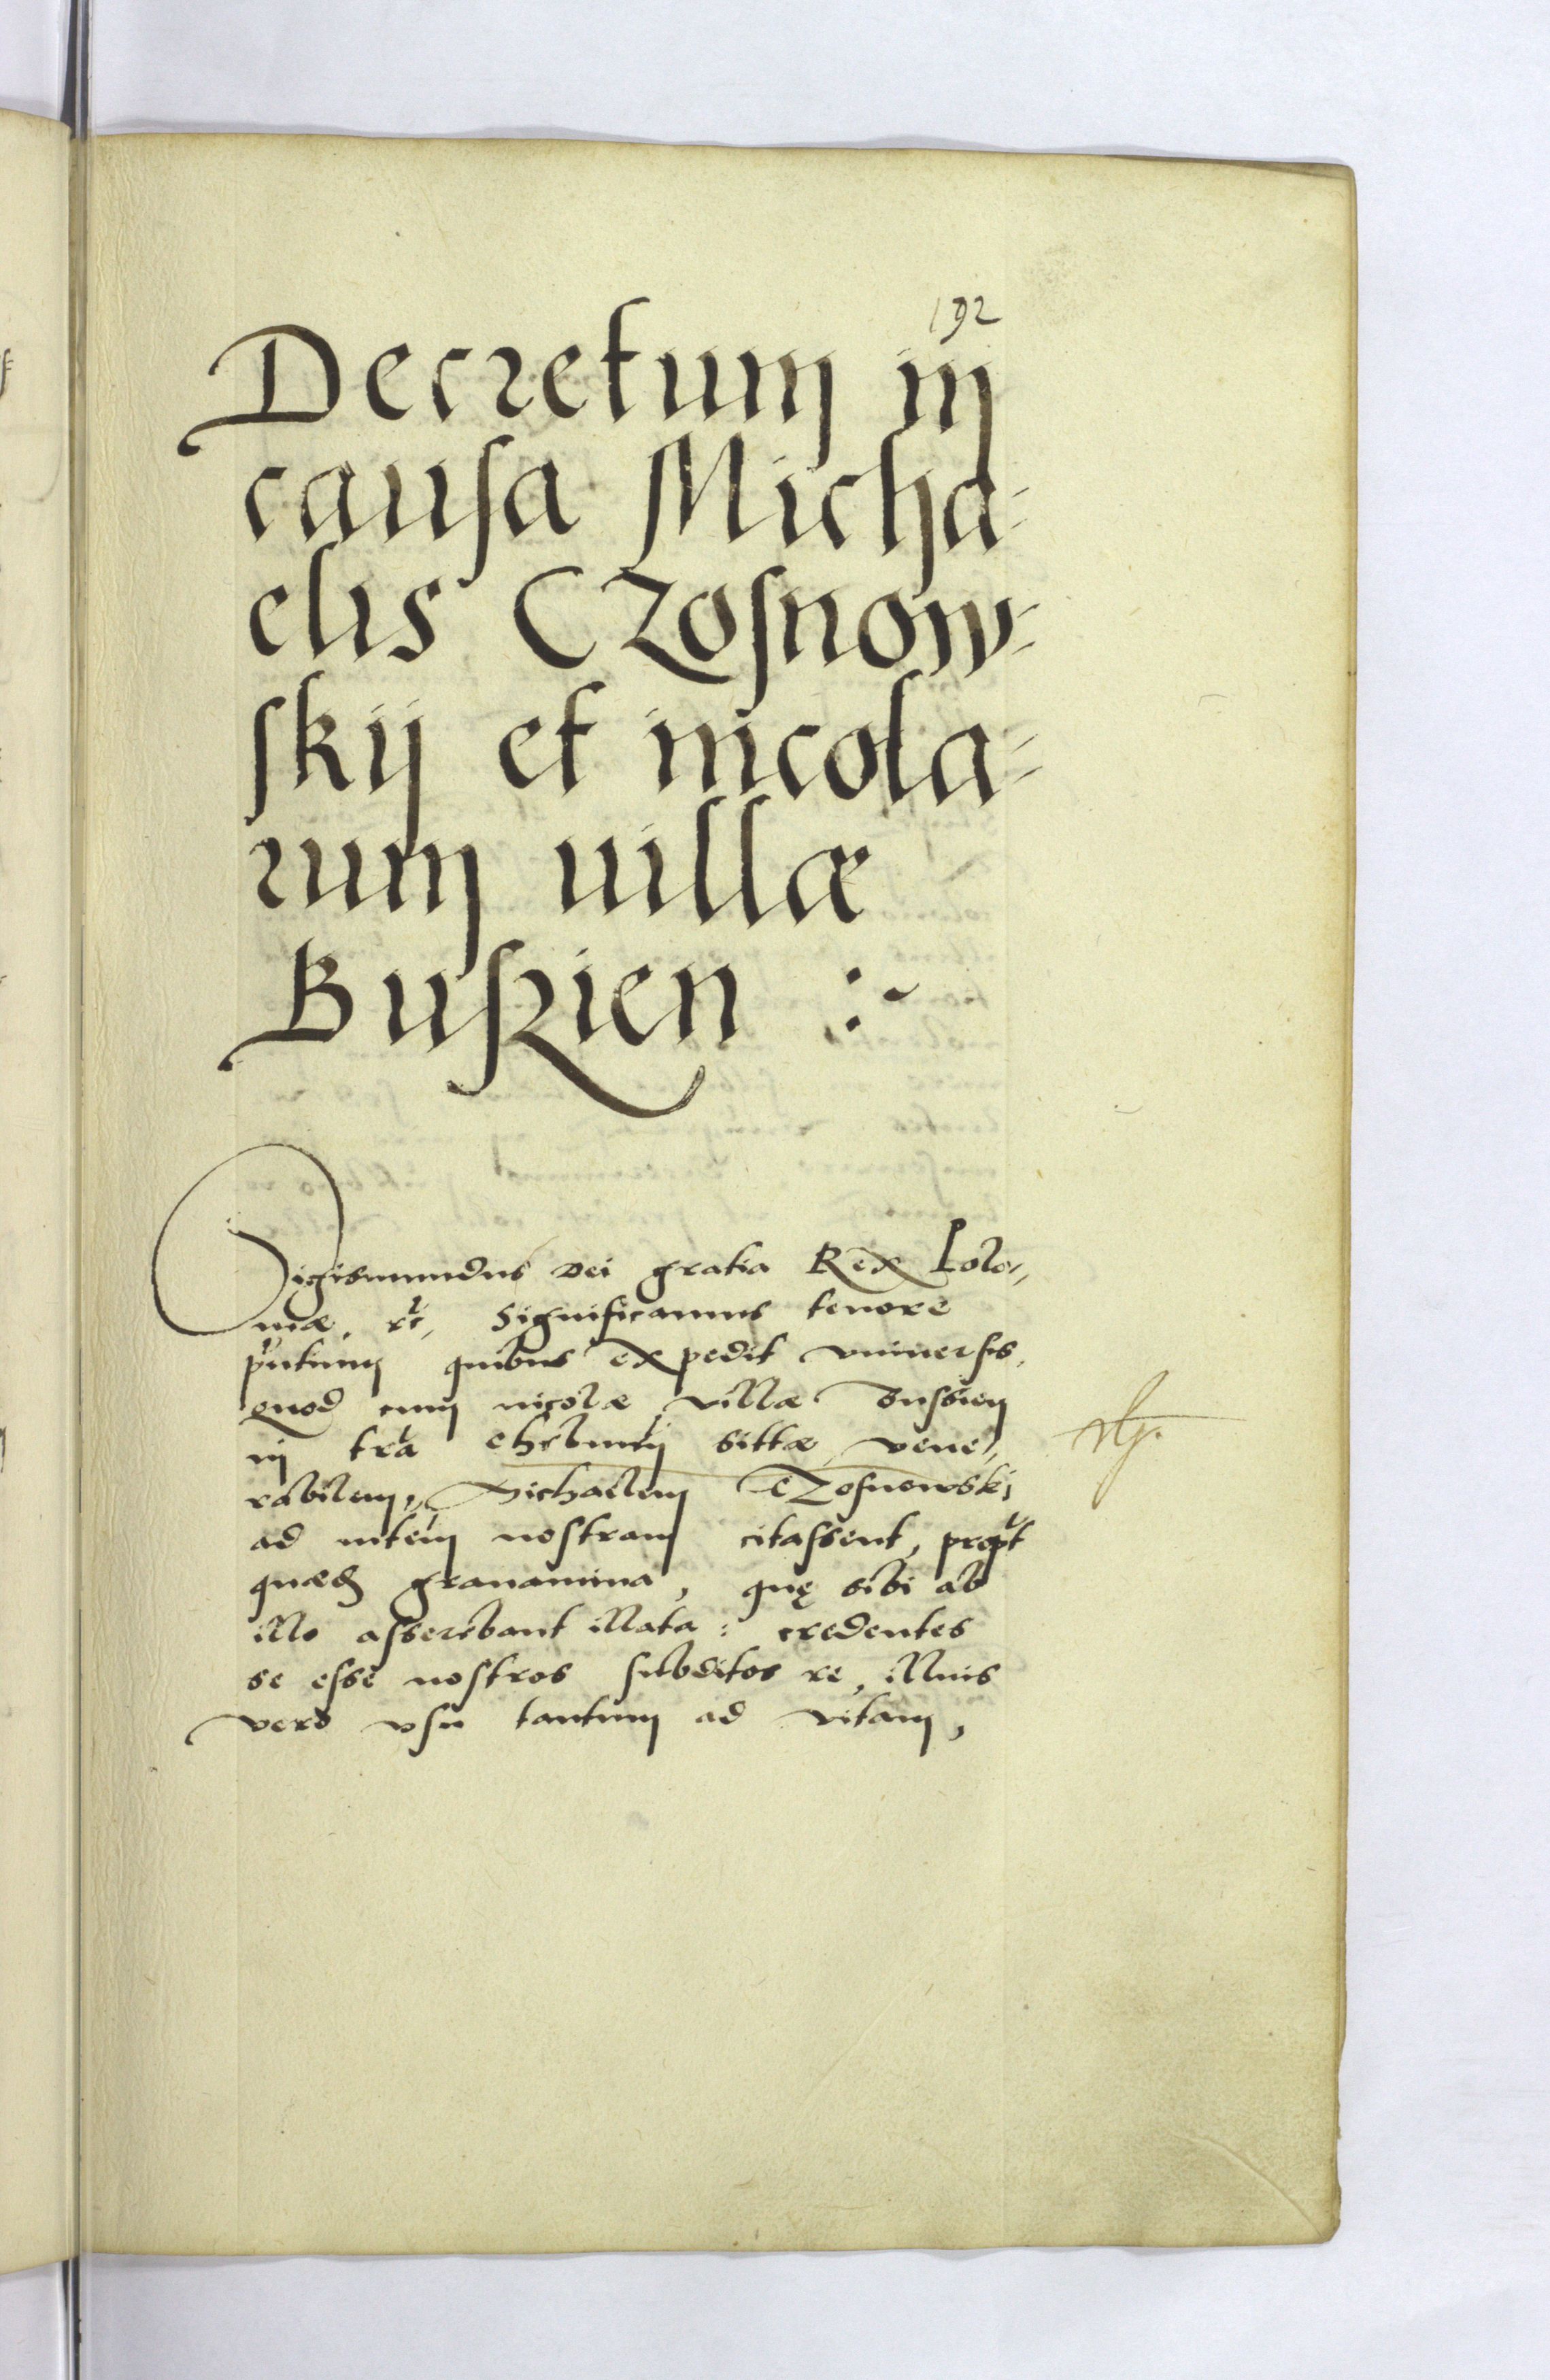 192
Decretum in
causa Micha-
elis CZosnow-
skij et incola-
rum uillæ
Buszien :~
Sigismundus Dei gratia Rex Polo-
niæ, etc, Significamus tenore
pñtium quibus expedit vniuersis,
quod cum incolæ villæ Bussien
in trã Chelmeñ sittæ, vene-
rabilem, Michaelem CZosnowskj
ad instañ nostram citassent, propt
quædã grauamina, quę sibi ab
illo asserebant illata: credentes
se esse nostros subditos re, illius
vero vsu tantum ad vitam,